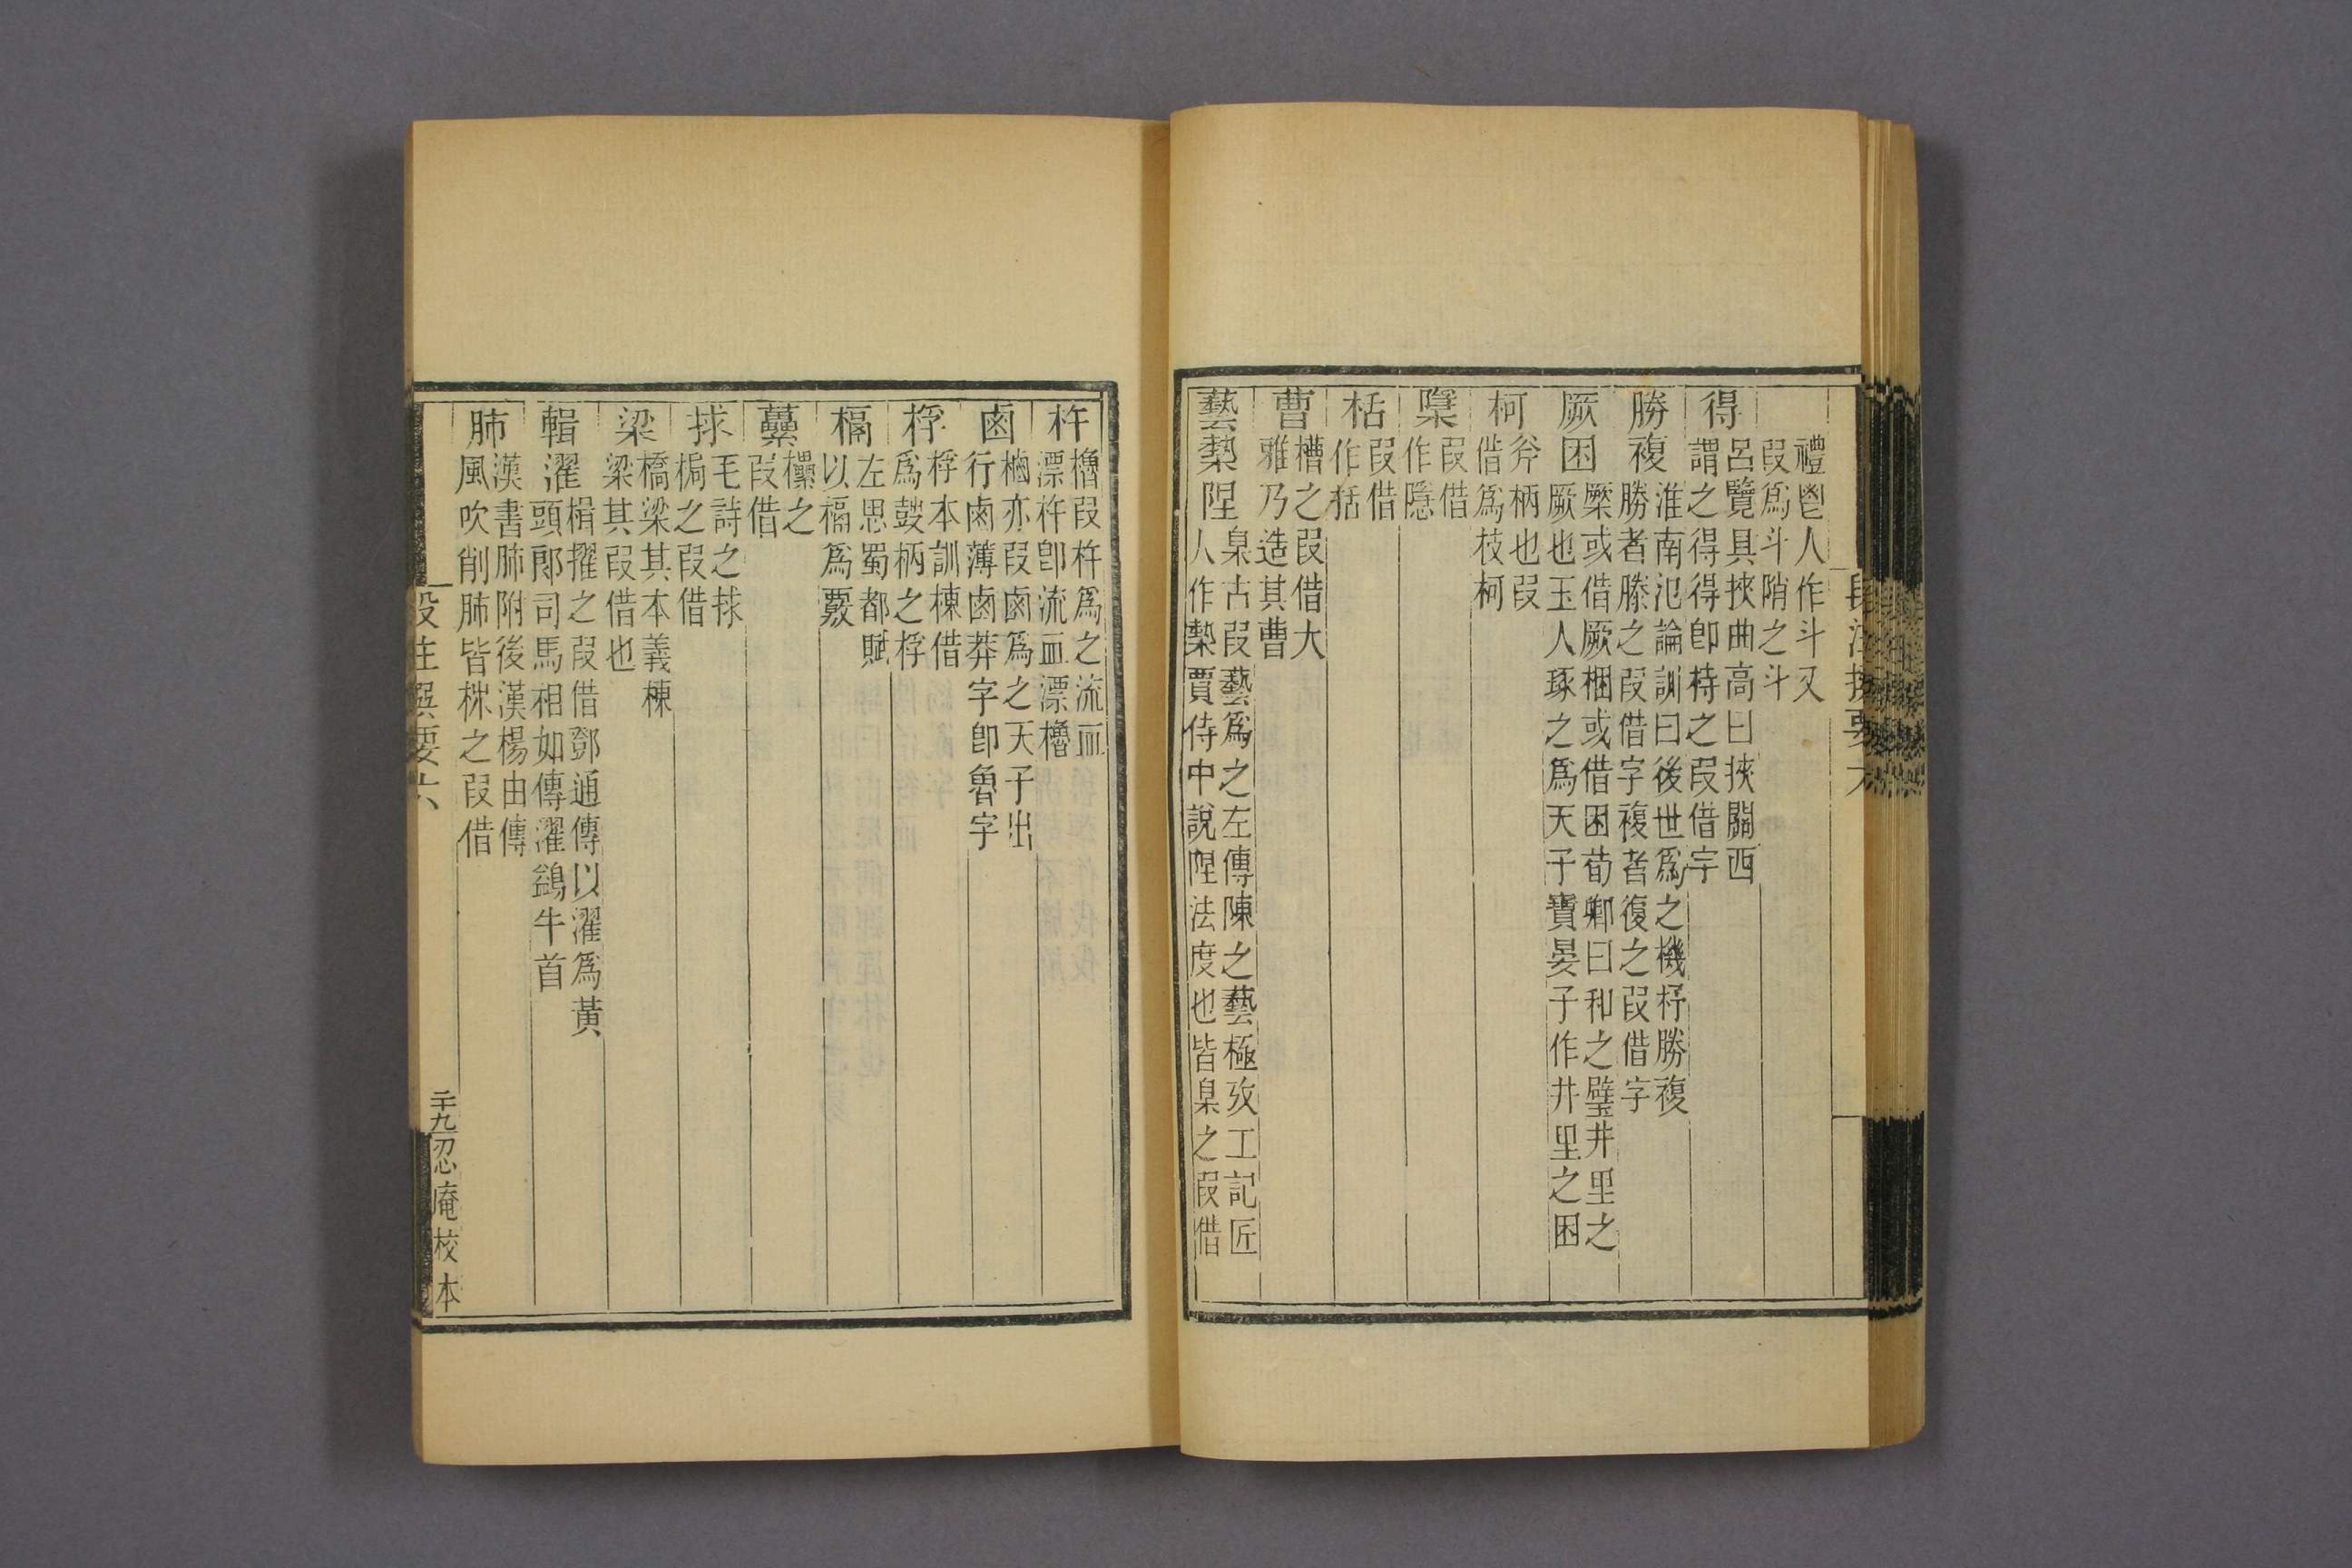 禮鬯人作斗又
叚爲斗陗之斗
得
呂覽具挾曲高曰挾關西
謂之得得卽㭙之叚借字
勝複
淮南氾論訓曰後世爲之機杼勝複
勝者縢之叚借字複者復之叚借字
厥困
橜或借厥梱或借困荀卿曰和之璧井里之
厥也玉人琢之爲天子寶晏子作井里之困
柯
斧柄也叚
借爲枝柯
檃
叚借
作隱
栝
叚借
作括
曹
槽之叚借大
雅乃造其曹
藝槷陧
臬古叚藝爲之左傳陳之藝極攷工記匠
人作槷賈侍中說陧法度也皆臬之叚借
段注撰要六
杵
櫓叚杵爲之流血
漂杵卽流血漂櫓
鹵
樐亦叚鹵爲之天子出
行鹵薄鹵莽字卽魯字
桴
桴本訓棟借
爲鼓柄之桴
槅
左思蜀都賦
以槅爲覈
虆
欙之
叚借
捄
毛詩之捄
梮之叚借
梁
橋梁其本義棟
梁其叚借也
輯濯
楫擢之叚借鄧通傳以濯爲黃
頭郎司馬相如傳濯鷁牛首
肺
漢書肺附後漢楊由傳
風吹削肺皆柹之叚借
段注撰要六
二十九
忍庵校本